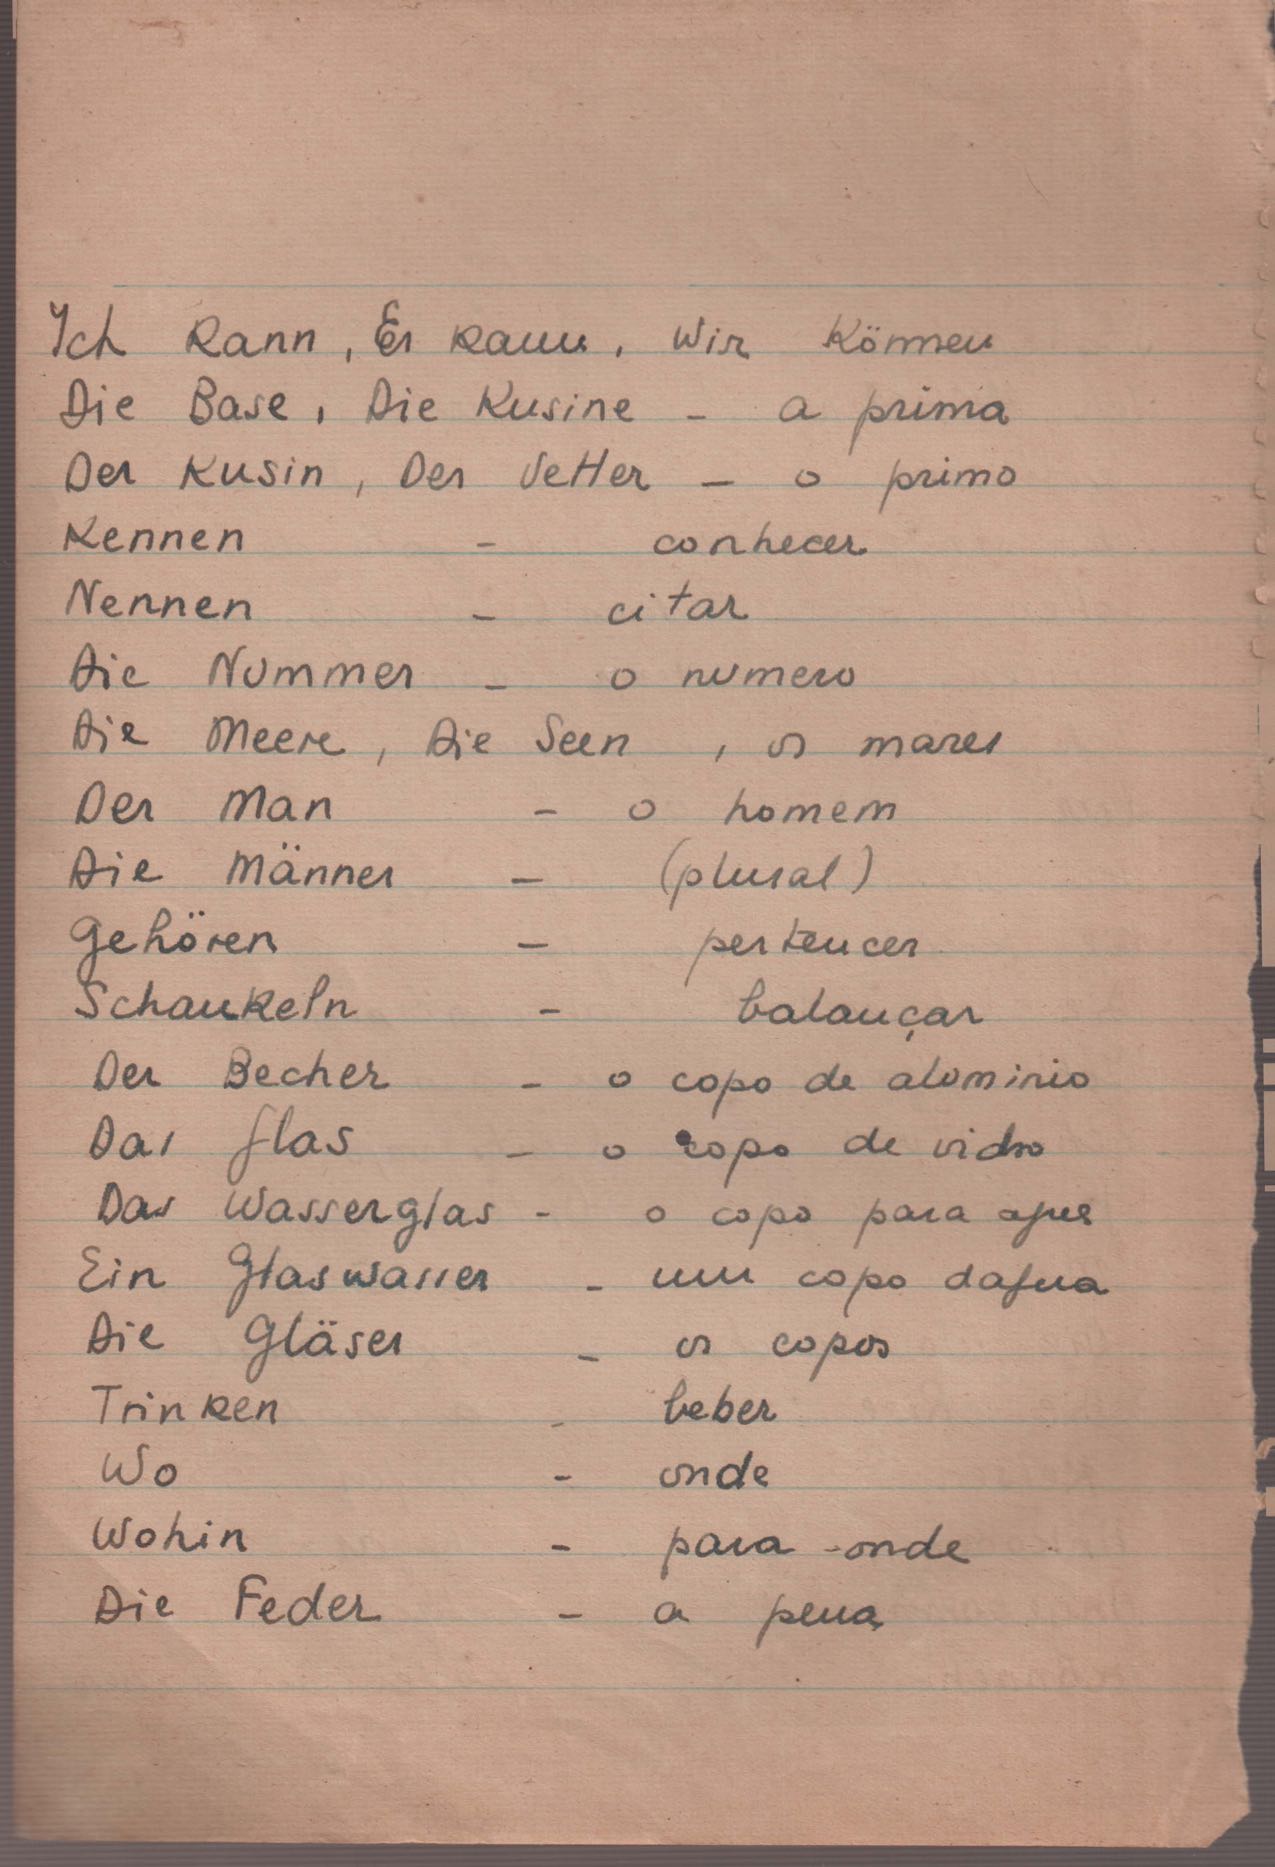 Ich kann, Er kann, Wir können
Die Base, Die Kusine - a prima
Der Kusin, Der Vetter - o primo
Kennen - conhecer
Nennen - citar
Die Nummer - o numero
Die Meere, Die Seen, os mares
Der Man - o homem
Die Männer - (plural)
Gehören - pertencer
Schaukeln - balançar
Der Becher - o copo de aluminio
Das Glas - o copo de vidro
Das Wasserglas - o copo para agua
Ein Glaswasser - um copo dagua
Die Gläser - os copos
Trinken - beber
Wo - onde
Wohin - para onde
Die Feder - a pena